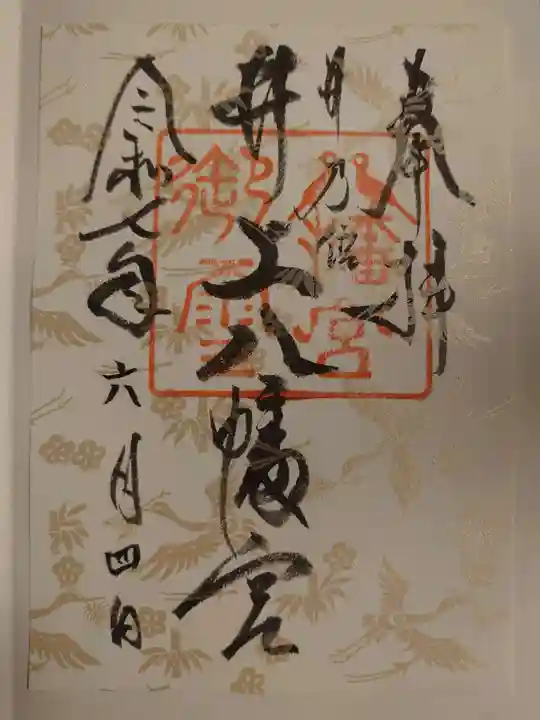 奉拝
丹乃館
井上八幡宮
八幡宮
御璽
令和七年六月四日